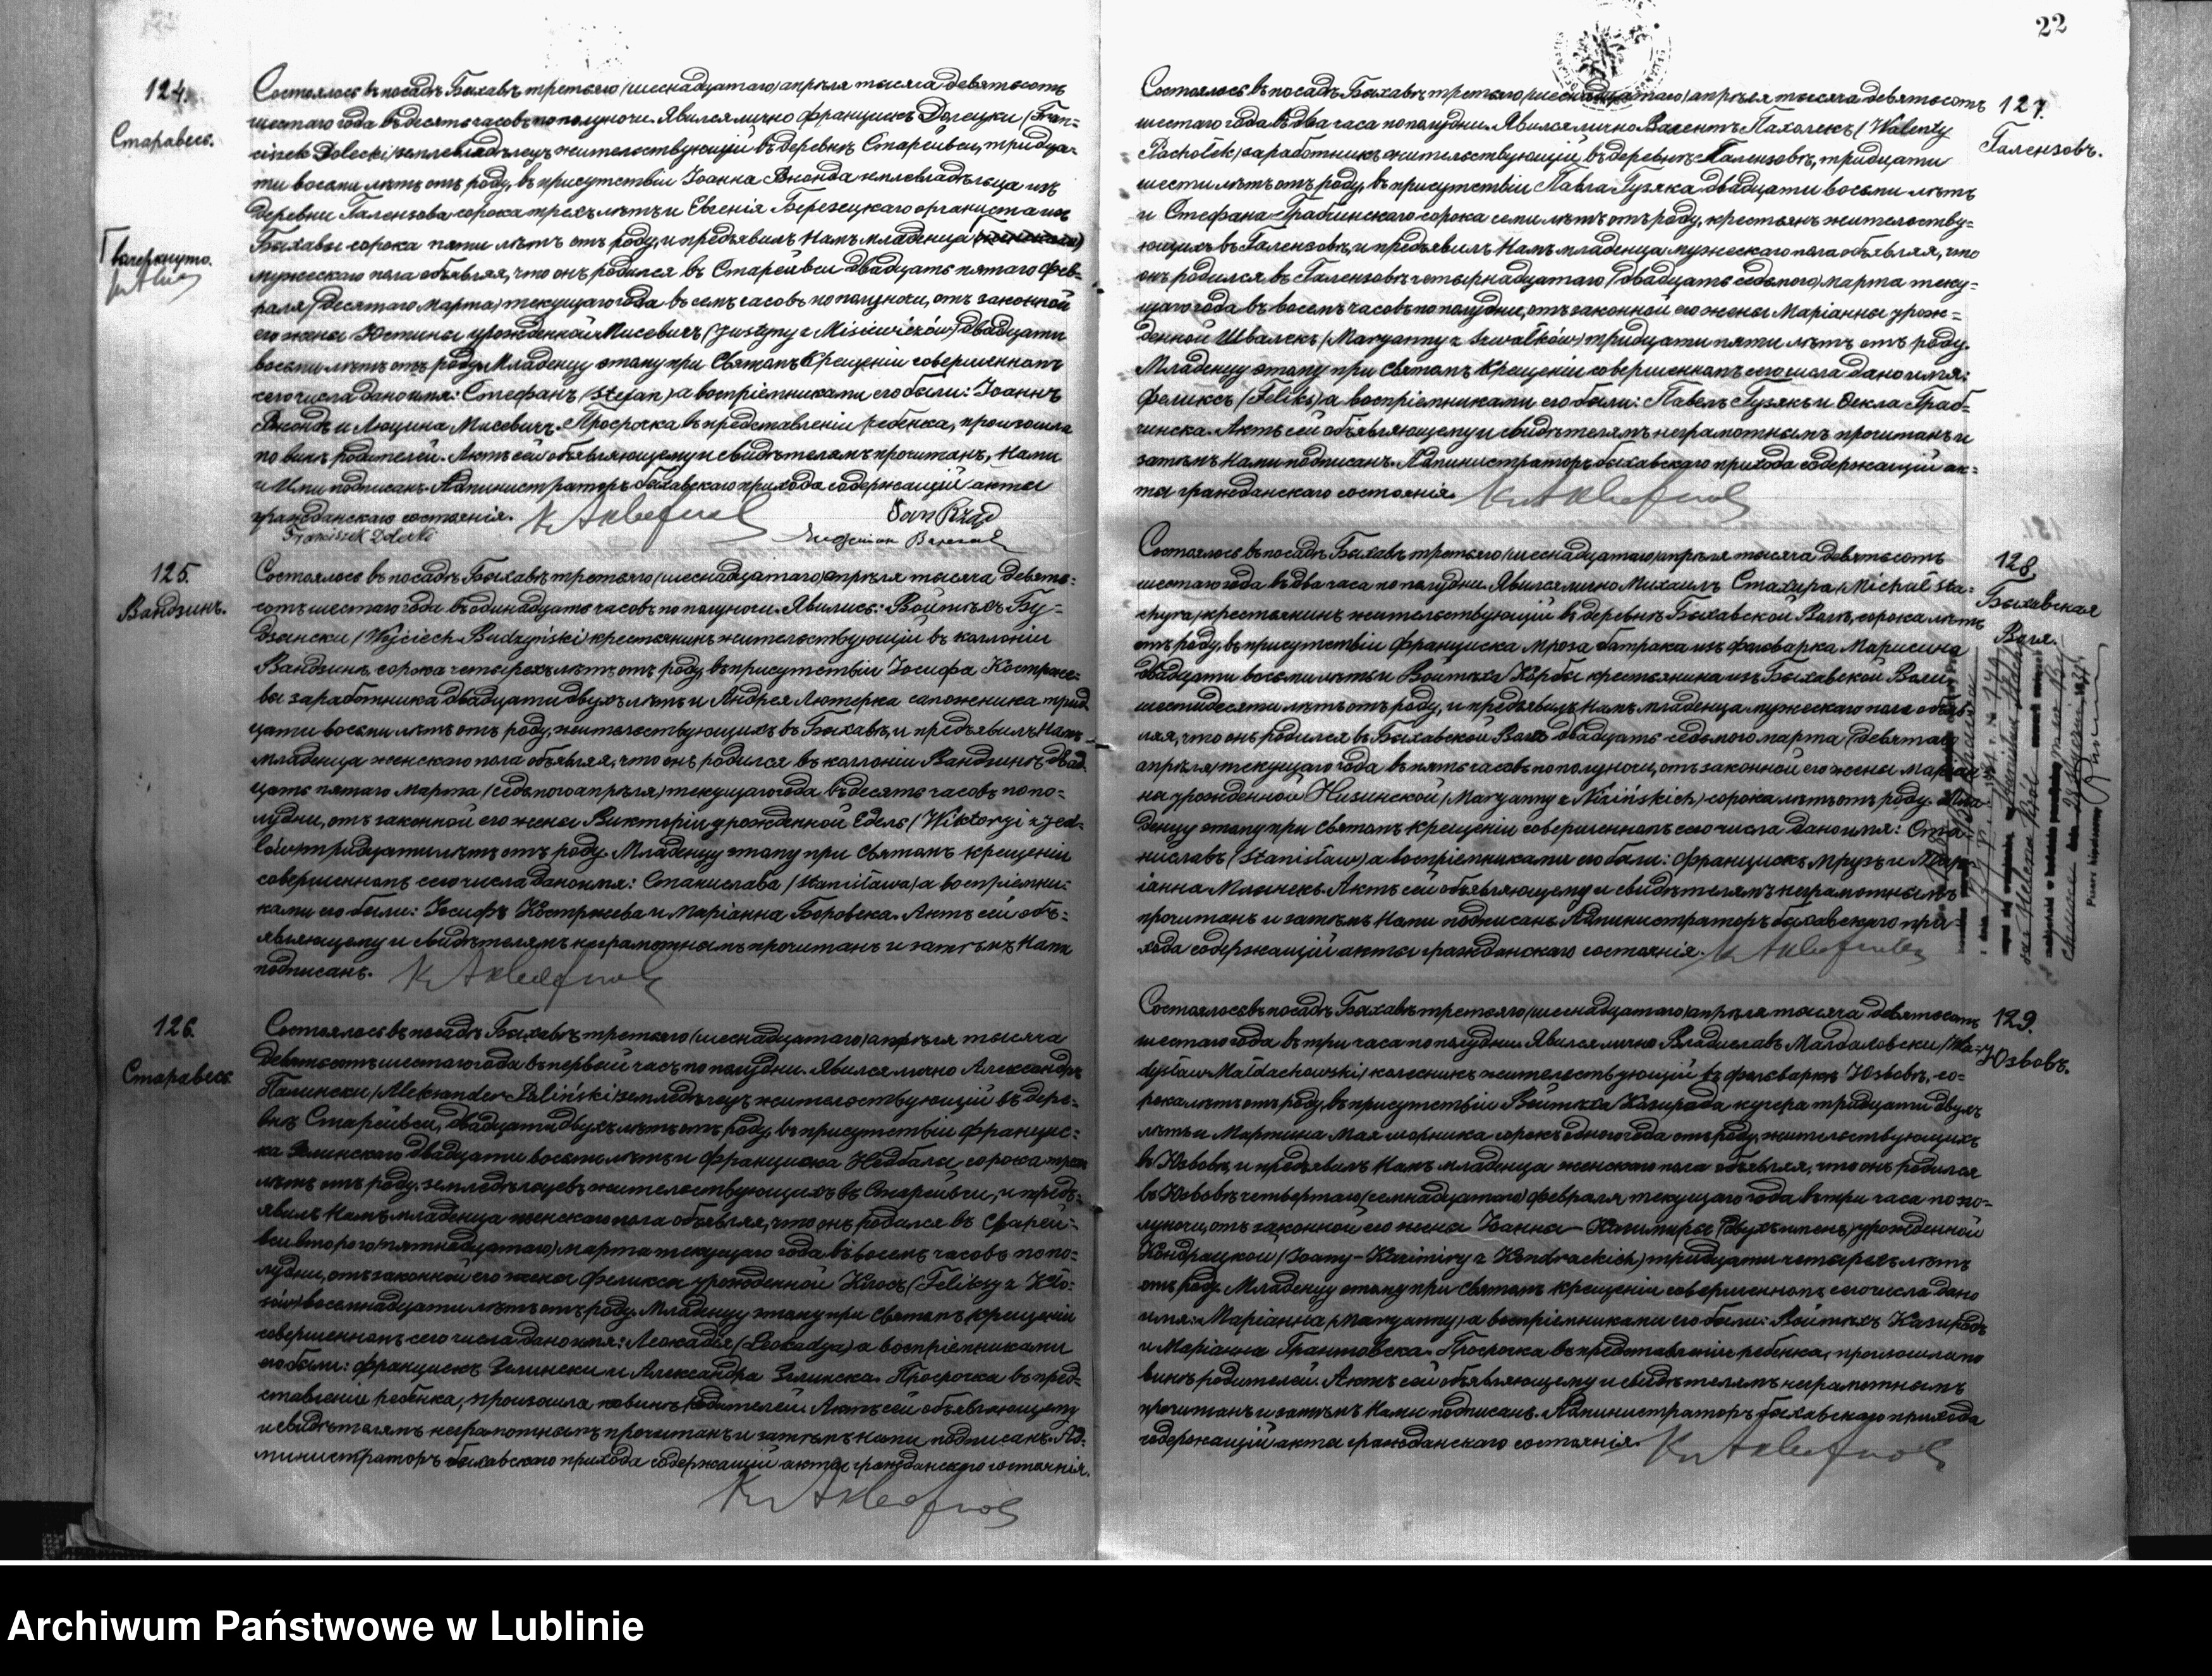 22
124.
Старавесь.
Состоялось въ посадѣ Быхавѣ третьяго (шестнадцатаго) апрѣля тысяча девятьсотъ
шестаго года въ десять часовъ пополуночи. Явился лично Францишекъ Долецки (Fran-
ciszek Dolecki) землевладѣлецъ жительствующій въ деревнѣ Старейвси, тридца-
ти восьми лѣтъ отъ роду, въ присутствіи Іоанна землевладѣльца изъ
деревни Галензова сорока трехъ лѣтъ и Евгенія Березецкаго органиста изъ
Быхавы сорока пяти лѣтъ отъ роду, и предъявилъ Намъ младенца
мужескаго пола объявляя, что онъ родился въ Старейвси двадцать пятаго фев-
раля (десятаго марта) текущаго года въ семь часовъ пополуночи, отъ законной
его жены Юстины урожденной Мисевичъ (Justyny z Misiewiczów) двадцати
восьми лѣтъ отъ роду. Младенцу этому при Святомъ Крещеніи совершенномъ
сего числа дано имя: Стефанъ (Stefan) а воспріемниками его были: Іоаннъ
и Люцина Мисевичъ. Просрочка въ представленіи ребенка, произошла
по винѣ родителей. Актъ сей объявляющему и свидѣтелямъ прочитанъ, Нами
и Ими подписанъ. Администраторъ быхавскаго прихода содержащій акты
гражданскаго состоянія.
Franciszek Dolecki
125.
Вандзинъ.
Состоялось въ посадѣ Быхавѣ третьяго (шестнадцатаго) апрѣля тысяча девять-
сотъ шестаго года въ одинадцать часовъ пополуночи. Явились: Войтѣхъ Бу-
дзынски (Wojciech Budzyński) крестьянинъ жительствующій въ колоніи
Вандзинъ, сорока четырехъ лѣтъ отъ роду, въ присутствіи Іосифа Костржe-
вы заработника двадцати двухъ лѣтъ и Андрея Лютерка сапожника трид-
цати восьми лѣтъ отъ роду, жительствующихъ въ Быхавѣ, и предъявилъ Намъ
младенца женскаго пола объявляя, что онъ родился въ колоніи Вандзинъ двад-
цать пятаго марта (седьмого апрѣля) текущаго года въ десять часовъ попо-
лудни, отъ законной его жены Викторіи урожденной Едель (Wiktoryi z Jed-
lów) тридцати лѣтъ отъ роду. Младенцу этому при Святомъ крещеніи
совершенномъ сего числа дано имя: Станислава (Stanisława) а воспріемни-
ками его были: Іосифъ Костржева и Маріанна Боровска. Актъ сей объ-
являющему и свидѣтелямъ неграмотнымъ прочитанъ и затѣмъ Нами
подписанъ.
126.
Старавесь.
Состоялось въ посадѣ Быхавѣ третьяго (шестнадцатаго) апрѣля тысяча
девятьсотъ шестаго года въ первый часъ пополудни. Явился лично Александръ
Палински (Aleksander Paliński) земледѣлецъ жительствующій въ дере-
внѣ Старейвси, двадцати двухъ лѣтъ отъ роду, въ присутствіи Францис-
ка Зелинскаго двадцати восьми лѣтъ и Франциска Недбалы, сорока трехъ
лѣтъ отъ роду, земледѣльцевъ жительствующихъ въ Старейвси, и предъ-
явилъ Намъ младенца женскаго пола объявляя, что онъ родился въ Старей-
вси второго (пятнадцатаго) марта текущаго года въ восемь часовъ попо-
лудни, отъ законной его жены Феликсы урожденной Клосъ (Feliksy z Kło-
sów) восемнадцати лѣтъ отъ роду. Младенцу этому при Святомъ крещеніи
совершенномъ сего числа дано имя: Леокадія (Leokadya) а воспріемниками
его были: Францискъ Зелински и Александра Зелинска. Просрочка въ пред-
ставленіи ребенка, произошла по винѣ родителей. Актъ сей объявляющему
и свидѣтелямъ неграмотнымъ прочитанъ и затѣмъ Нами подписанъ. Ад-
министраторъ быхавскаго прихода содержащій акты гражданскаго состоянія.
127.
Галензовъ.
Состоялось въ посадѣ Быхавѣ третьяго (шестнадцатаго) апрѣля тысяча девятьсотъ
шестаго года въ два часа пополудни. Явился лично Валентъ Пахолекъ (Walenty
Pachołek) заработникъ жительствующій въ деревнѣ Галензовѣ, тридцати
шести лѣтъ отъ роду, въ присутствіи Павла Гузяка двадцати восьми лѣтъ
и Стефана Грабчинскаго сорока семи лѣтъ отъ роду, крестьянъ жительству-
ющихъ въ Галензовѣ, и предъявилъ Намъ младенца мужескаго пола объявляя, что
онъ родился въ Галензовѣ четырнадцатаго (двадцать седьмого) марта теку-
щаго года въ восемь часовъ пополудни, отъ законной его жены Маріанны урож-
денной Швалекъ (Maryanny z Szwałków) тридцати пяти лѣтъ отъ роду.
Младенцу этому при Святомъ Крещеніи совершенномъ сего числа дано имя:
Феликсъ (Feliks) а воспріемниками его были: Павелъ Гузякъ и Фекла Граб-
чинска. Актъ сей объявляющему и свидѣтелямъ неграмотнымъ прочитанъ и
затѣмъ Нами подписанъ. Администраторъ быхавскаго прихода содержащій ак-
ты гражданскаго состоянія.
128.
Быхавская
Воля.
Состоялось въ посадѣ Быхавѣ третьяго (шестнадцатаго) апрѣля тысяча девятьсотъ
шестаго года въ два часа пополудни. Явился лично Михаилъ Стахыра (Michał Sta-
chyra) крестьянинъ жительствующій въ деревнѣ Быхавской Волѣ, сорока лѣтъ
отъ роду, въ присутствіи Франциска Мроза батрака изъ фольварка Марисина
двадцати восьми лѣтъ и Войтѣха крестьянина изъ Быхавской Воли
шестидесяти лѣтъ отъ роду, и предъявилъ Намъ младенца мужескаго пола объяв-
ляя, что онъ родился въ Быхавской Волѣ двадцать седьмого марта (девятаго
апрѣля) текущаго года въ пять часовъ пополуночи, отъ законной его жены Маріан-
ны урожденной Низинской (Maryanny z Nizińskich) сорока лѣтъ отъ роду. Мла-
денцу этому при Святомъ Крещеніи совершенномъ сего числа дано имя: Ста-
ниславъ (Stanisław) а воспріемниками его были: Францискъ Мрузъ и Мар-
іанна Млынекъ. Актъ сей объявляющему и свидѣтелямъ неграмотнымъ
прочитанъ и затѣмъ Нами подписанъ. Администраторъ быхавскаго при-
хода содержащій акты гражданскаго состоянія.
129.
Юзвовъ.
Состоялось въ посадѣ Быхавѣ третьяго (шестнадцатаго) апрѣля тысяча девятьсотъ
шестаго года въ три часа пополудни. Явился лично Владиславъ Малдаховски (Wła-
dysław Małdachowski) колесникъ жительствующій въ фольваркѣ Юзвовѣ, со-
рока лѣтъ отъ роду, въ присутствіи Войтѣха Казирода кучера тридцати двухъ
лѣтъ и Мартина Мая сорокъ одного года отъ роду, жительствующихъ
въ Юзвовѣ, и предъявилъ Намъ младенца женскаго пола объявляя, что онъ родился
въ Юзвовѣ четвертаго (семнадцатаго) февраля текущаго года въ три часа попо-
луночи, отъ законной его жены Іоанны-Казимиры (двухъ именъ) урожденной
Кондрацкой (Joany-Kazimiry z Kondrackich) тридцати четырехъ лѣтъ
отъ роду. Младенцу этому при Святомъ Крещеніи совершенномъ сего числа дано
имя: Маріанна (Maryanny) а воспріемниками его были: Войтѣхъ Казиродъ
и Маріанна Грантовска. Просрочка въ представленіи ребенка, произошла по
винѣ родителей. Актъ сей объявляющему и свидѣтелямъ неграмотнымъ
прочитанъ и затѣмъ Нами подписанъ. Администраторъ быхавскаго прихода
содержащій акты гражданскаго состоянія.
Archiwum Państwowe w Lublinie